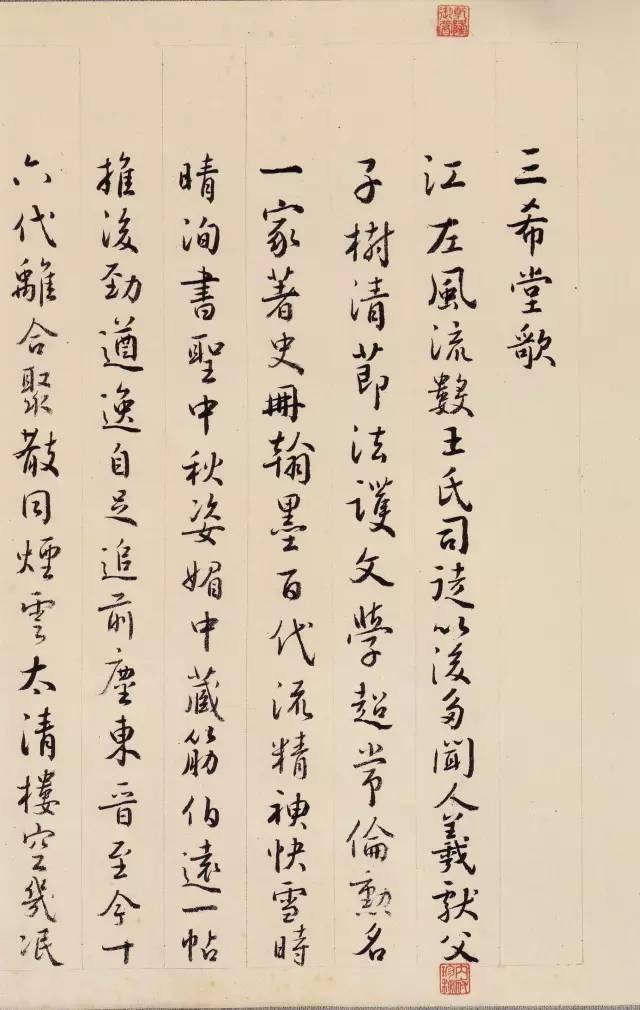 三希堂歌
江左風流數王氏司徒以後多聞人羲獻父
子樹清節法護文學超常倫勳名
一家著史冊翰墨百代流精神快雪時
晴洵書聖中秋姿媚中藏筋伯遠一帖
推後勁遒逸自足追前塵東晉至今十
六代離合聚散同煙雲太清樓空幾泯